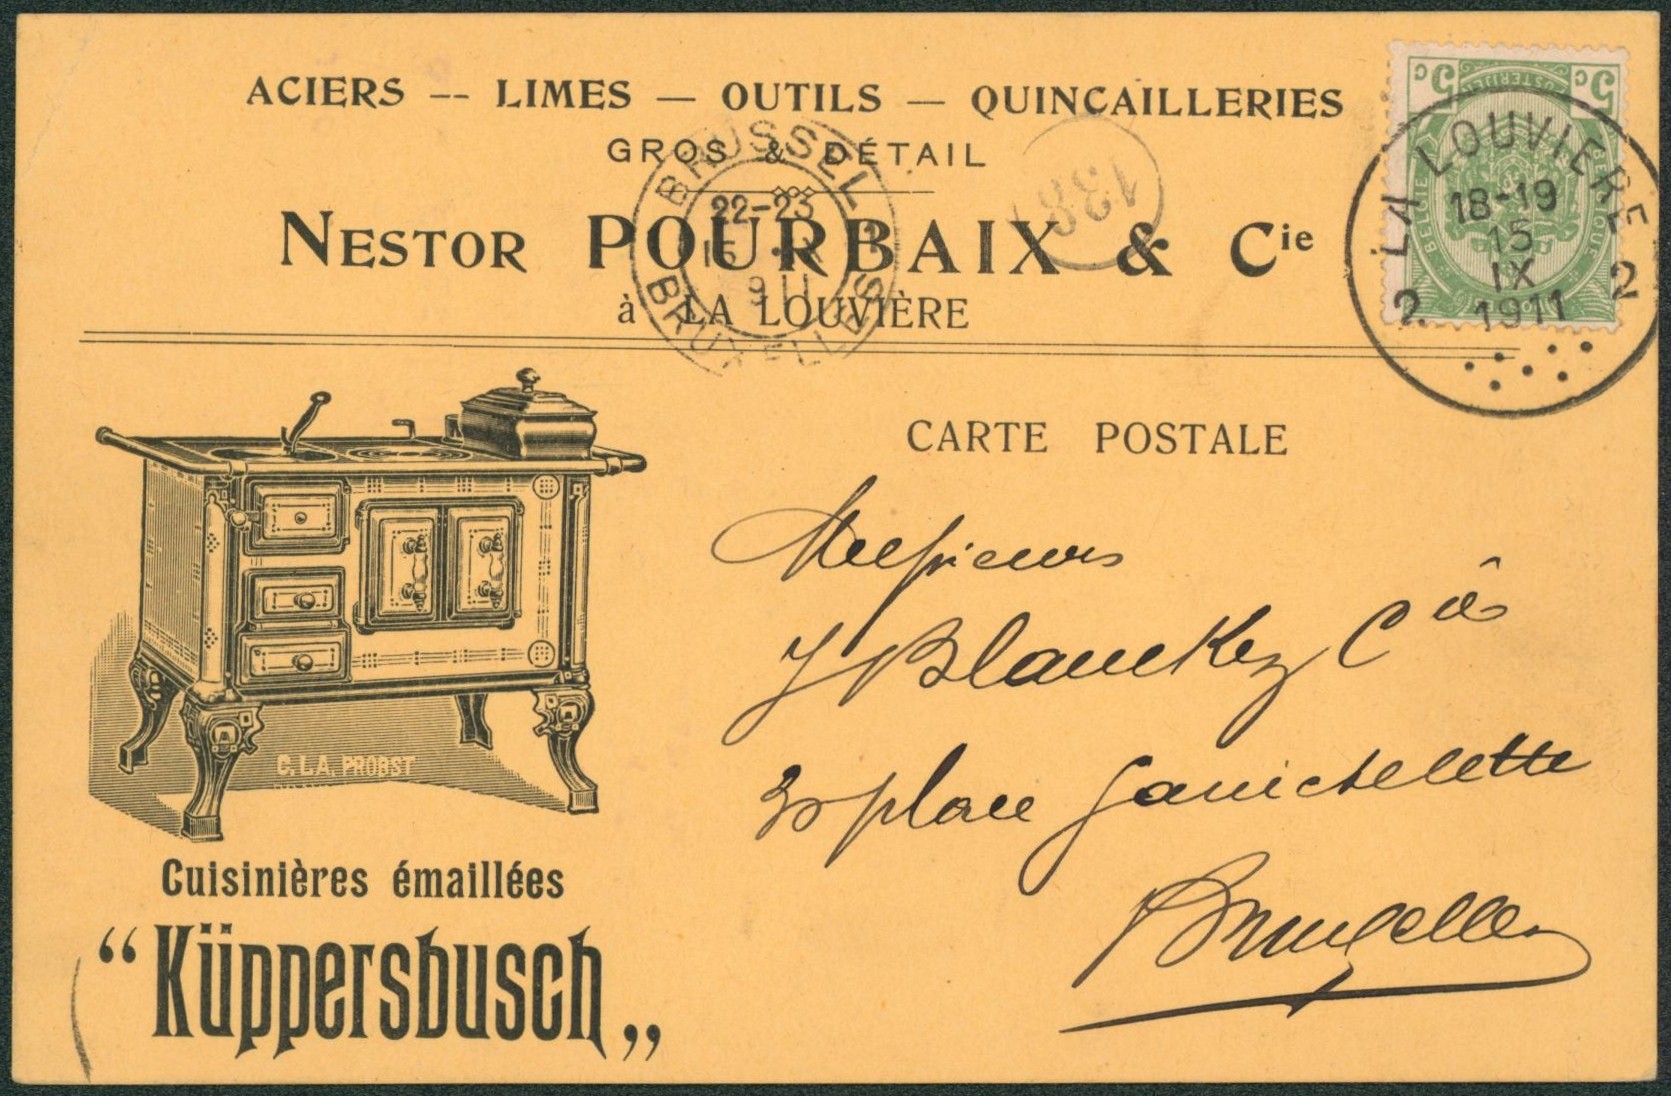 ACIERS -- LIMES — OUTILS — QUINCAILLERIES
GROS & DÉTAIL
NESTOR POURBAIX & Cie
à LA LOUVIÈRE
BRUSSEL 1
22-23
15
911
BRUXELLES
138
5c 5c
BELGIE BELGIQUE
LA LOUVIERE
18-19
15
IX
1911
2 2
CARTE POSTALE
Messieurs
J Blanckez Cie
30 place
Bruxelles
C. LA. PROBST
Cuisinières émaillées
“Küppersbusch„